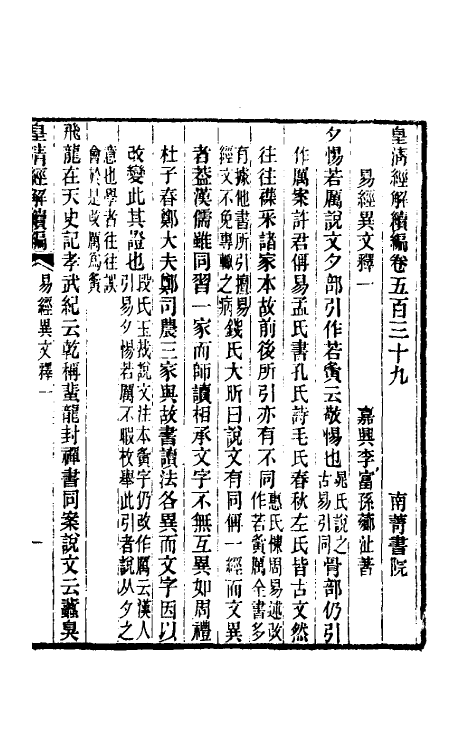 皇清經解續編卷五百三十九 南菁書院
易經異文釋一 嘉興李富孫薌沚著
夕惕若厲說文夕部引作若夤云敬惕也晁氏說之古易引同骨部仍引
作厲案許君偁易孟氏書孔氏詩毛氏春秋左氏皆古文然
往往襍釆諸家本故前後所引亦有不同惠氏棟周易述改作若夤厲全書多
有據他書所引擅易經文不免專輒之病錢氏大昕曰說文有同偁一經而文異
者葢漢儒雖同習一家而師讀相承文字不無互異如周禮
杜子春鄭大夫鄭司農三家與故書讀法各異而文字因以
改變此其證也段氏玉裁說文注本夤字仍改作厲云漢人引易夕惕若厲不暇枚舉此引者說从夕之
意也學者往往誤會於是改厲爲夤
飛龍在天史記孝武紀云乾稱蜚龍封禪書同案說文云蠹臭
皇清經解續編 易經異文釋一 一